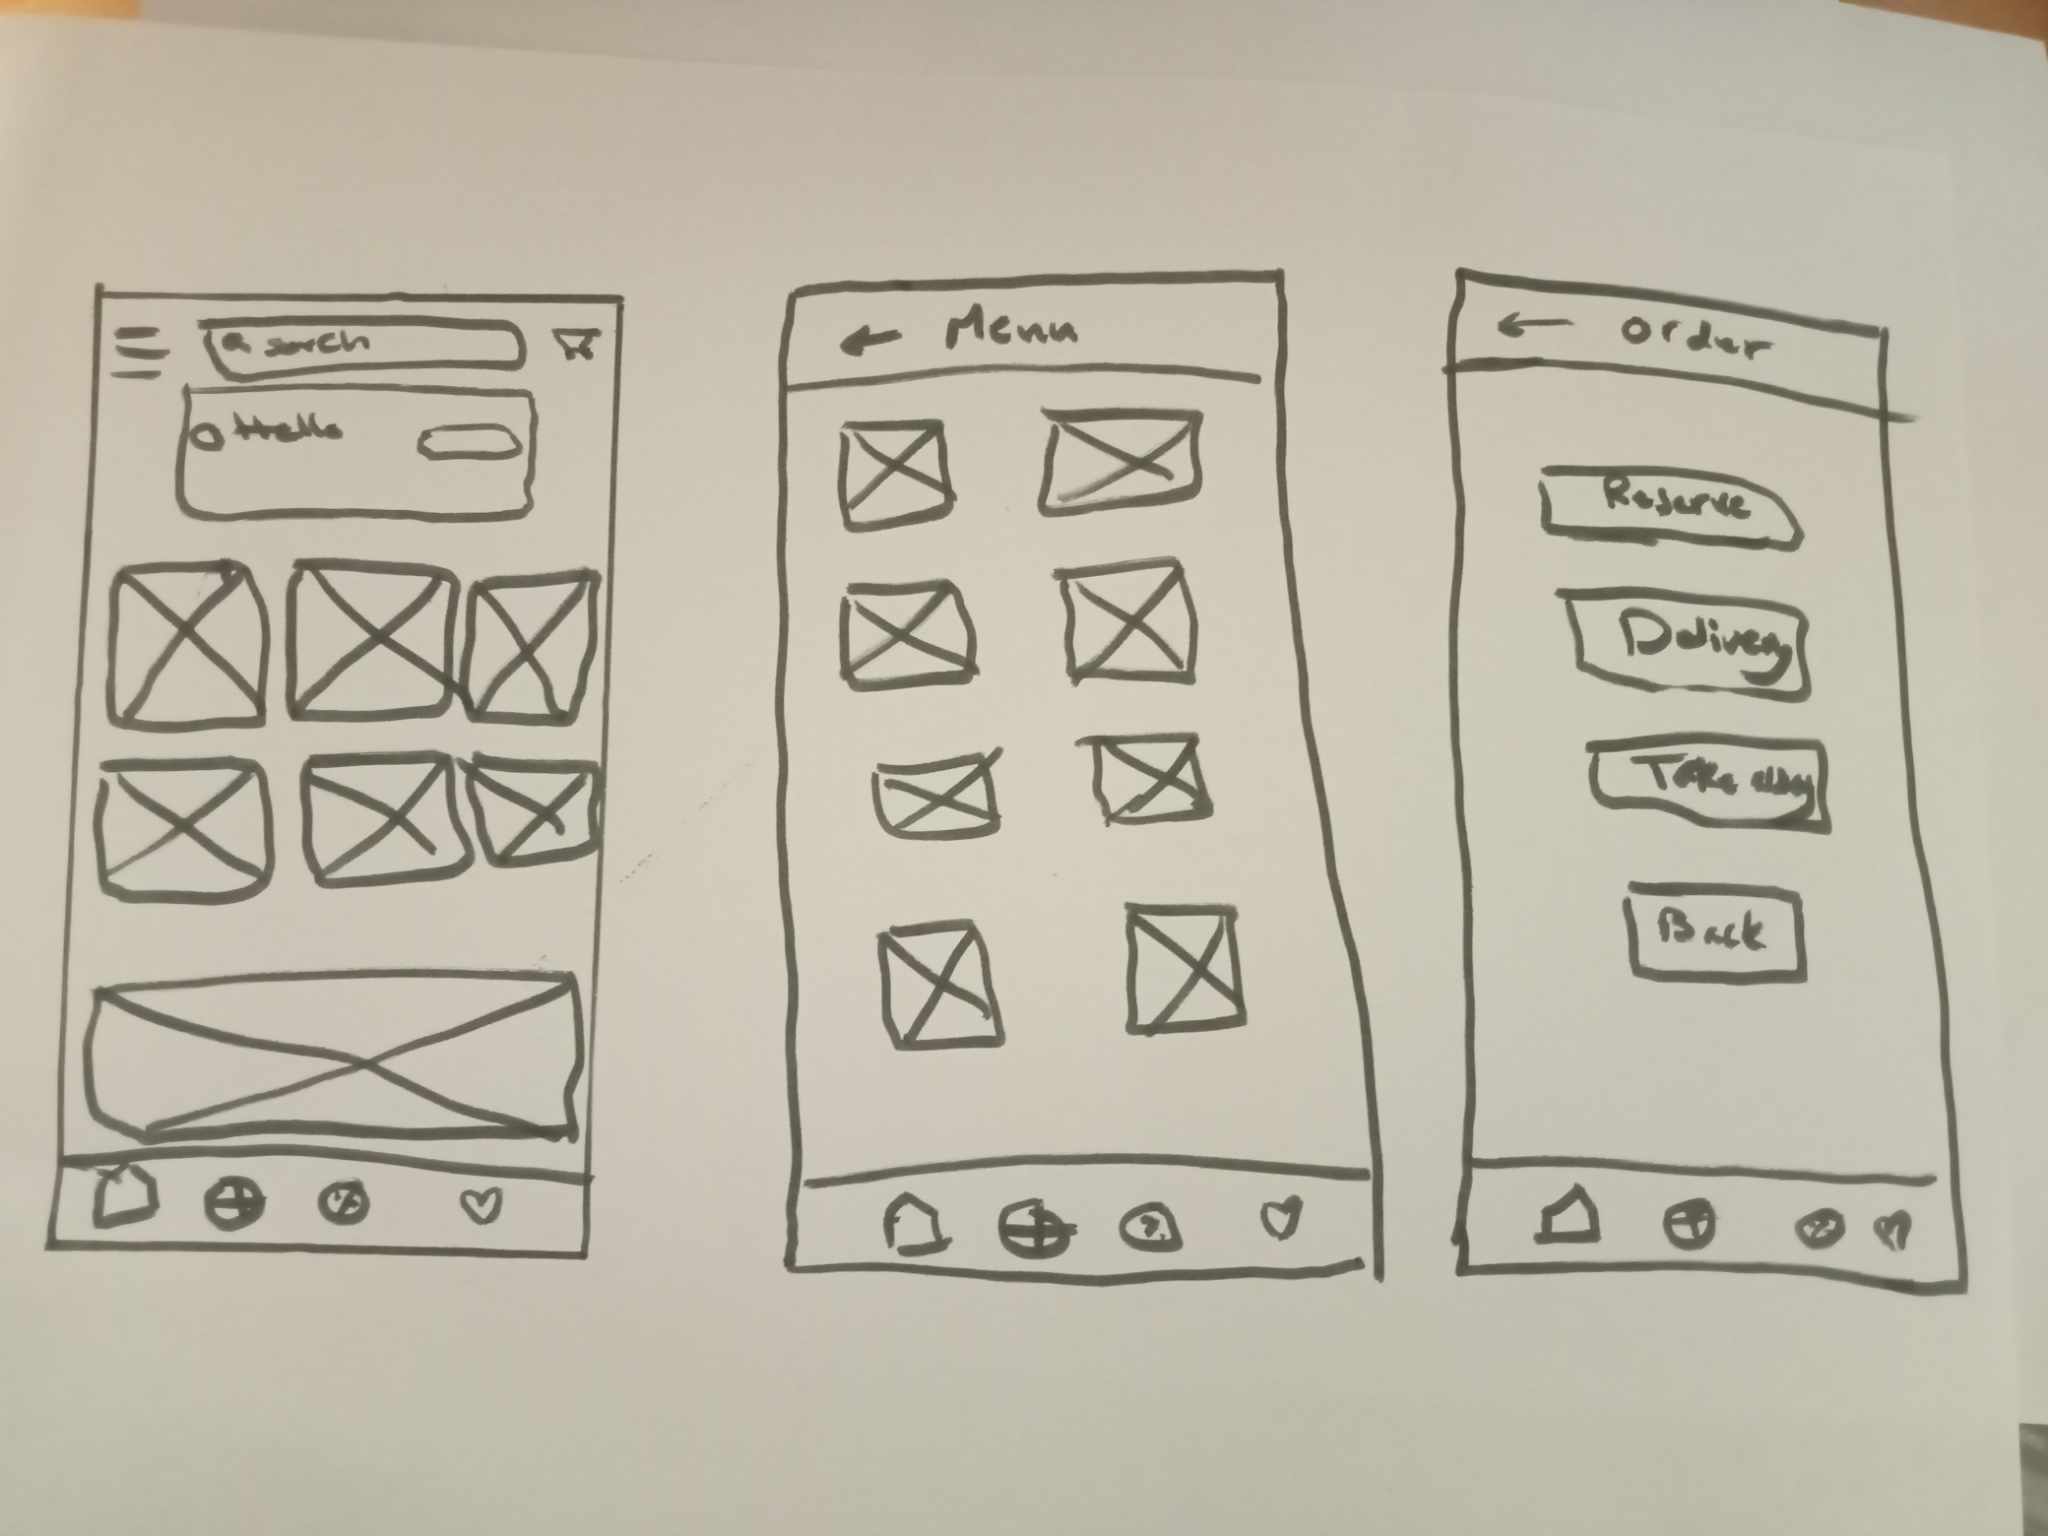 Search
Hello
Menu
Order
Reserve
Delivery
Take away
Back